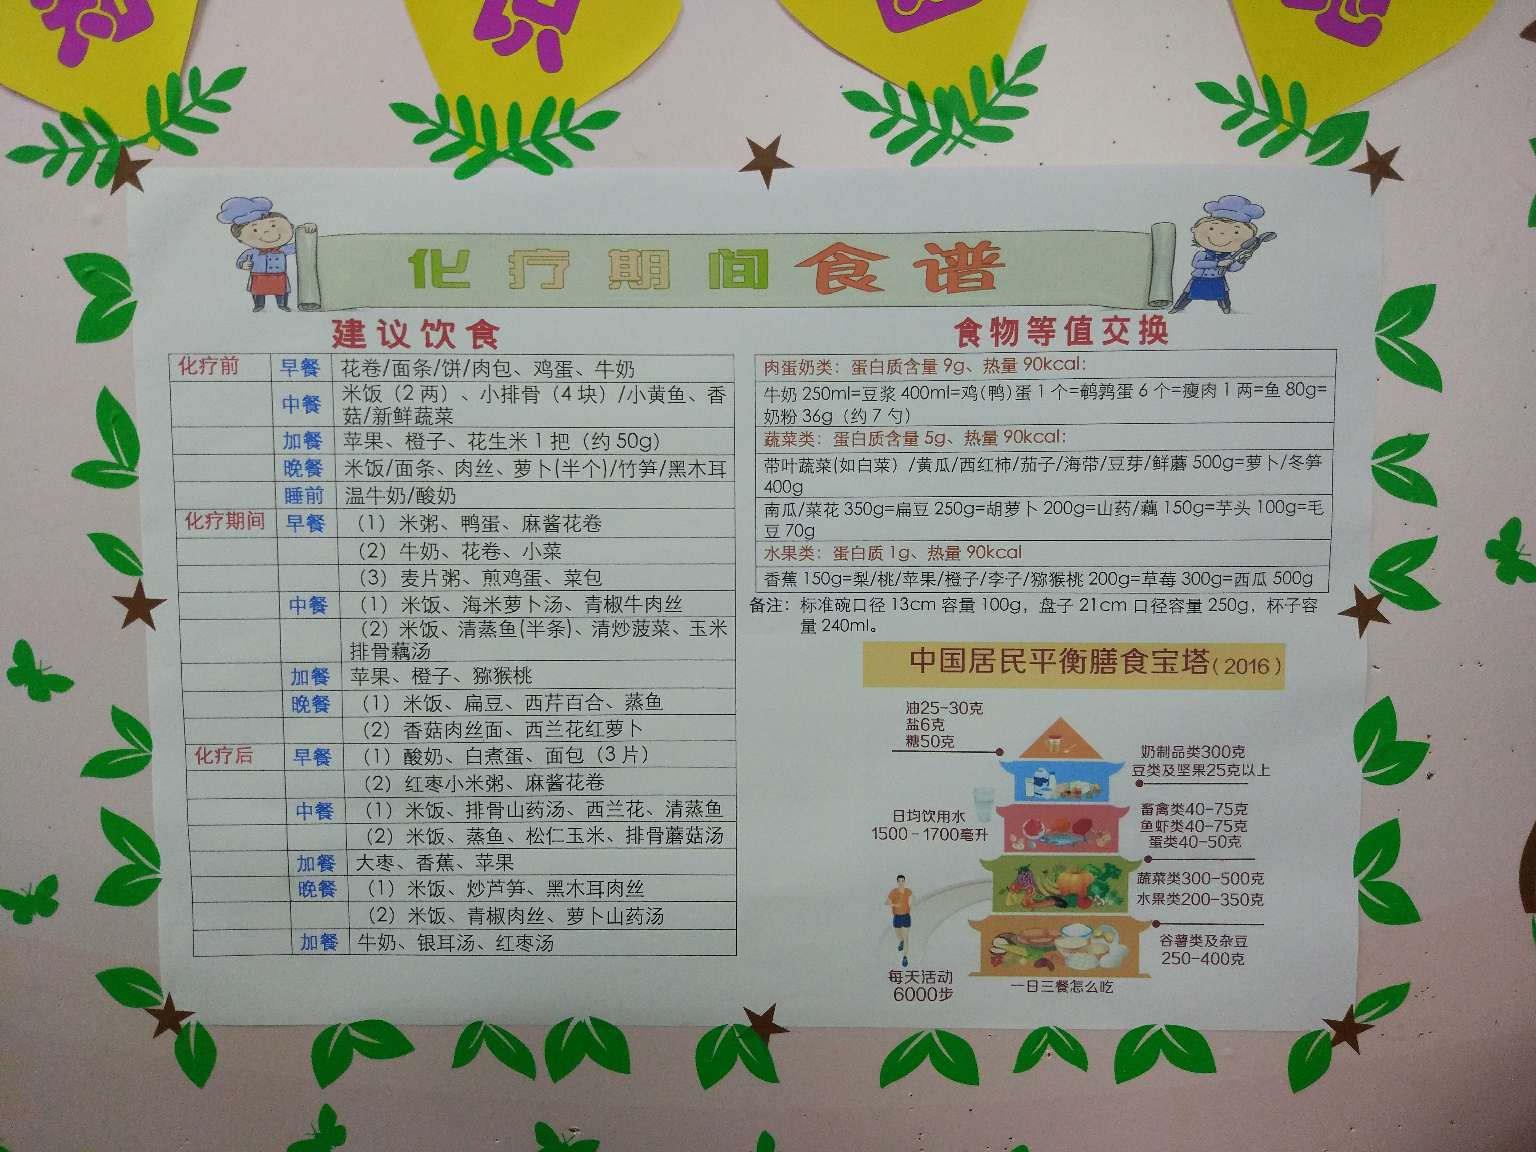 化疗期间食谱
建议饮食
化疗前 早餐 花卷/面条/饼/肉包、鸡蛋、牛奶
中餐 米饭（2两）、小排骨（4块）/小黄鱼、香
菇/新鲜蔬菜
加餐 苹果、橙子、花生米1把（约50g）
晚餐 米饭/面条、肉丝、萝卜(半个)/竹笋/黑木耳
睡前 温牛奶/酸奶
化疗期间 早餐 （1）米粥、鸭蛋、麻酱花卷
（2）牛奶、花卷、小菜
（3）麦片粥、煎鸡蛋、菜包
中餐 （1）米饭、海米萝卜汤、青椒牛肉丝
（2）米饭、清蒸鱼(半条)、清炒菠菜、玉米
排骨藕汤
加餐 苹果、橙子、猕猴桃
晚餐 （1）米饭、扁豆、西芹百合、蒸鱼
（2）香菇肉丝面、西兰花红萝卜
化疗后 早餐 （1）酸奶、白煮蛋、面包（3片）
（2）红枣小米粥、麻酱花卷
中餐 （1）米饭、排骨山药汤、西兰花、清蒸鱼
（2）米饭、蒸鱼、松仁玉米、排骨蘑菇汤
加餐 大枣、香蕉、苹果
晚餐 （1）米饭、炒芦笋、黑木耳肉丝
（2）米饭、青椒肉丝、萝卜山药汤
加餐 牛奶、银耳汤、红枣汤
食物等值交换
肉蛋奶类：蛋白质含量9g、热量90kcal:
牛奶250ml=豆浆400ml=鸡(鸭)蛋1个=鹌鹑蛋6个=瘦肉1两=鱼80g=
奶粉36g（约7勺）
蔬菜类：蛋白质含量5g、热量90kcal:
带叶蔬菜(如白菜）/黄瓜/西红柿/茄子/海带/豆芽/鲜蘑500g=萝卜/冬笋
400g
南瓜/菜花350g=扁豆250g=胡萝卜200g=山药/藕150g=芋头100g=毛
豆70g
水果类：蛋白质1g、热量90kcal
香蕉150g=梨/桃/苹果/橙子/李子/猕猴桃200g=草莓300g=西瓜500g
备注：标准碗口径13cm容量100g，盘子21cm口径容量250g，杯子容
量240ml。
中国居民平衡膳食宝塔(2016)
油25-30克
盐6克
糖50克
奶制品类300克
豆类及坚果25克以上
日均饮用水
1500-1700毫升
畜禽类40-75克
鱼虾类40-75克
蛋类40-50克
蔬菜类300-500克
水果类200-350克
谷薯类及杂豆
250-400克
每天活动
6000步
一日三餐怎么吃